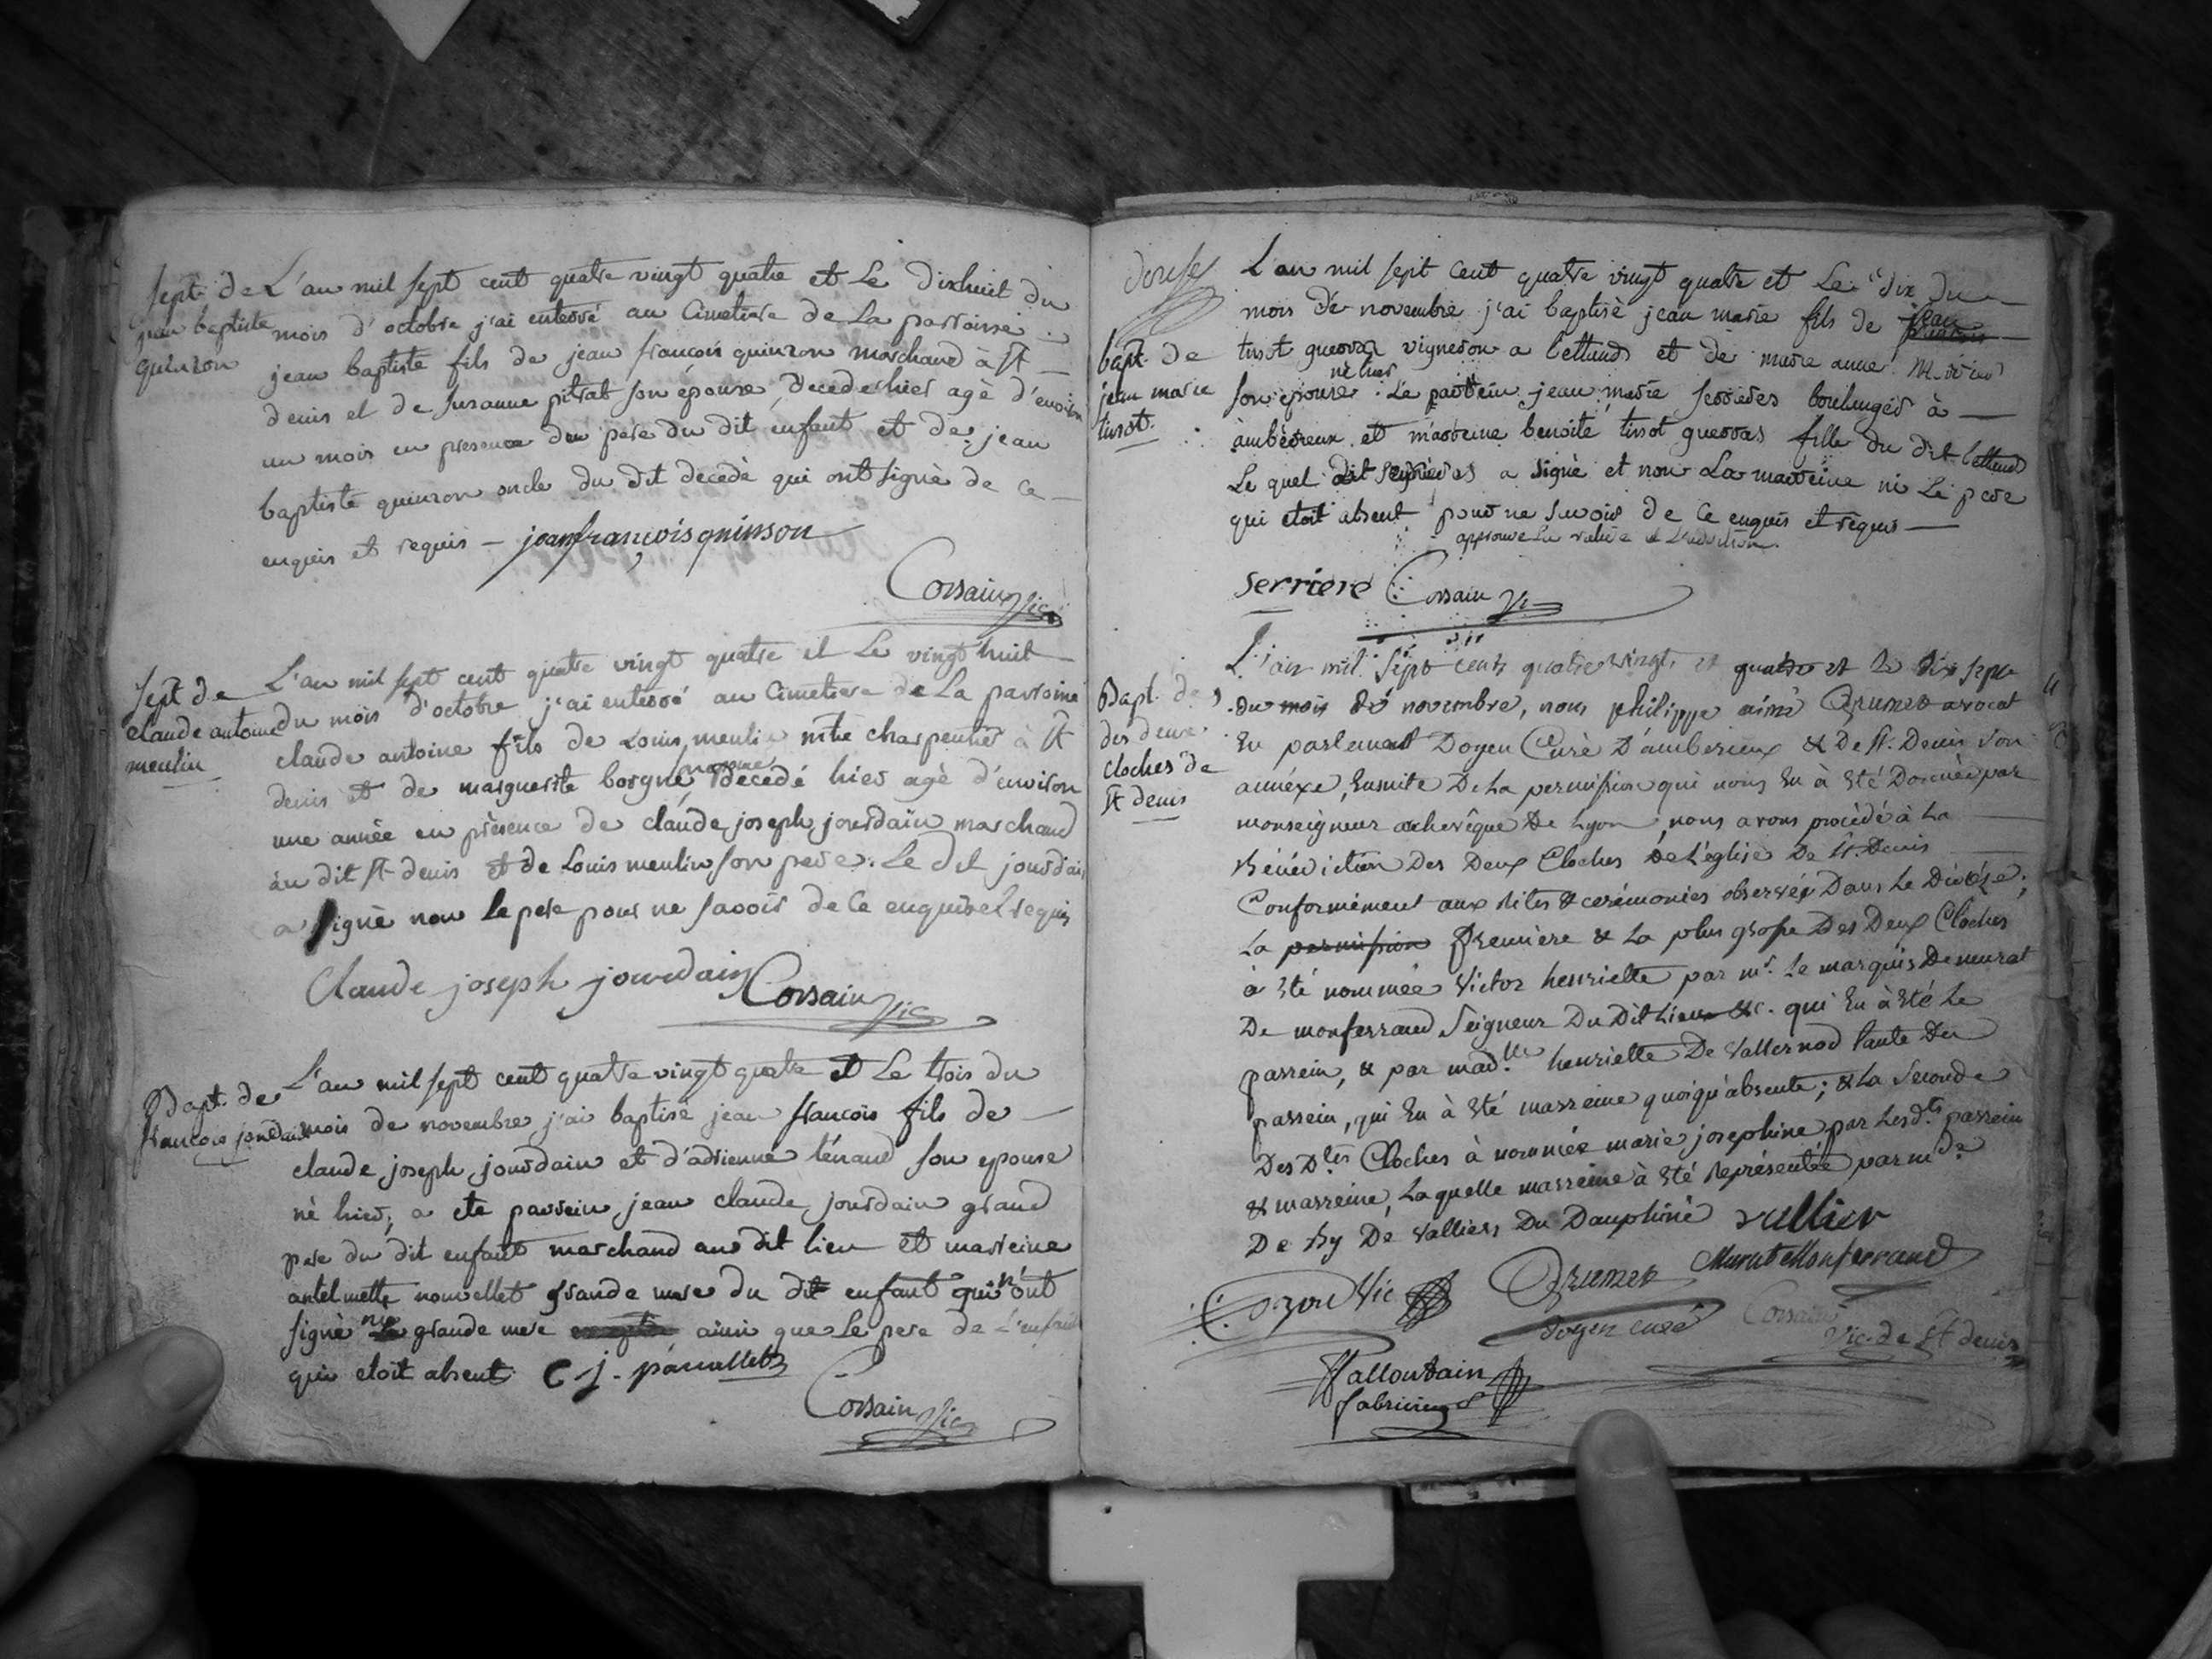 Sept. de
jean baptiste
quinson
L'an mil sept cent quatre vingt quatre et Le dixhuit du
mois d'octobre j'ai enterré au Cimetiere de La parroisse
jean baptiste fils de jean francois quinson marchand à St
denis et de Susanne pitrat son épouse, decedé hier agè d'environ
un mois en presence du pere du dit enfant et de jean
baptiste quinson oncle du dit decedè qui ont signè de ce
enquis et requis – jeanfrançois quinson
Corsain Vic
Sept. de
claude antoine
meulin
L'an mil sept cent quatre vingt quatre et Le vingt huit
du mois d'octobre j'ai enterré au Cimetiere de La parroisse
claude antoine fils de Louis meulin mtre charpentier à St
denis et de marguerite borgne decédé hier agè d'environ
une année en prèsence de claude joseph jourdain marchand
au dit St denis et de Louis meulin son pere. Le dit jourdain
a signè non le pere pour ne savoir de Ce enquis et requis
Claude joseph jourdain Corsain Vic
Bapt. de
francois jourdain
L'an mil sept cent quatre vingt quatre et Le trois du
mois de novembre j'ai baptisé jean francois fils de
claude joseph jourdain et d'adrienne ténand son epouse
né hier, a ete parrein jean claude jourdain grand
pere du dit enfant marchand au dit lieu et marreine
antelmette nouvellet grande mere du dit enfant qui n'ont
signè grande mere ainsi que Le pere de L'enfant
qui etoit absent C j.
Corsain Vic
bapt. de
jean marie
tissot.
L'an mil sept Cent quatre vingt quatre et Le dix du
mois de novembre j'ai baptisè jean marie fils de jean
tissot guerraz vigneron a bettand et de marie anne
né hier
son epouse. Le parrein jean marie serrieres boulanger à
àmbèrieux et marreine benoite tissot guerras fille du dit bettand
Le quel dit serrieres a signè et non La marreine ni Le pere
qui etoit absent pour ne savoir de Ce enquis et requis
approuvé La rature et
serriere Corsain Vic
Bapt. de
des deux
cloches de
St denis
L'an mil sept cent quatre vingt et quatre et le dix sept
du mois de novembre, nous philippe aimé Grumet avocat
En parlement Doyen Curè D'amberieux & De St. Denis son
annéxe, Ensuite De La permission qui nous En à Eté Donnée par
monseigneur archevêque De Lyon, nous avons procédé à La
Bénédiction Des Deux Cloches De L'église De St. Denis
Conformément aux Rites & cerémonies observés Dans Le Diocèse;
La permission Première & La plus grosse Des Deux Cloches
à Eté nommée Victor henriette par mr. Le marquis De murat
De monferrand Seigneur Du Dit Lieu &c. qui En à Eté Le
parrein, & par mad.lle henriette De Vallernod tante Du
parrein, qui En à Eté marreine quoiqu'absente; & La Seconde
Des Dtes Cloches à nommée marie josephine par Les dts parrein
& marreine, Laquelle marreine à Eté représentée par mde
De By De Valliers Du Dauphiné vallier
Murat de Monferrand
Vic Grumet
Doyen curé Corsain
Vic. de St denis
Palloudain
fabricien